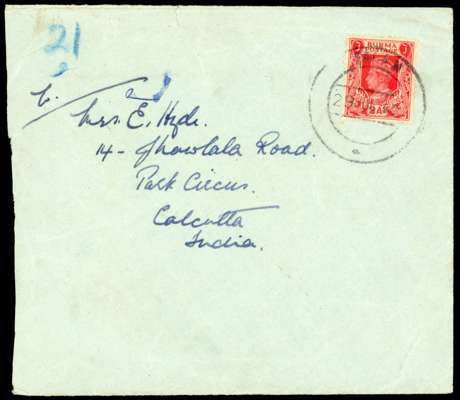 21
BURMA
POSTAGE
Mrs. E. Hyde.
14 - Jhowlala Road.
Park Circus.
Calcutta
India.